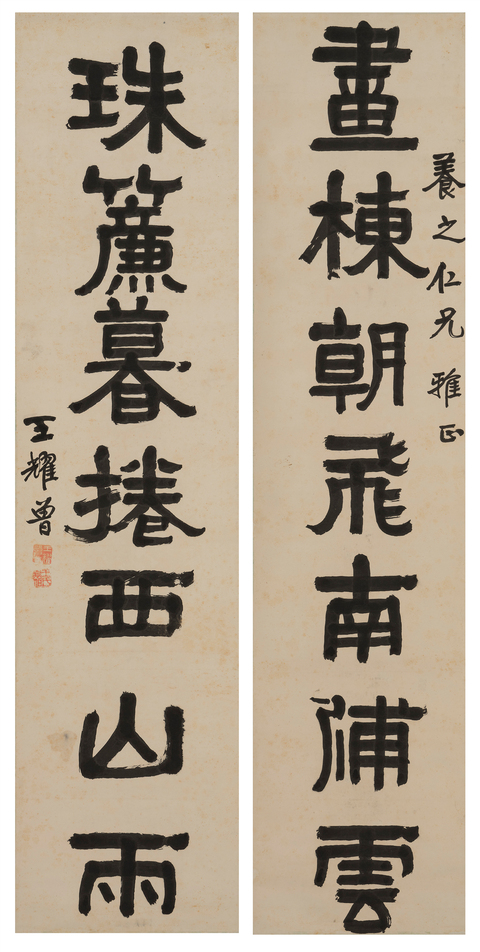 養之仁兄 雅正
畫棟朝飛南浦雲
珠簾暮捲西山雨
王耀曾